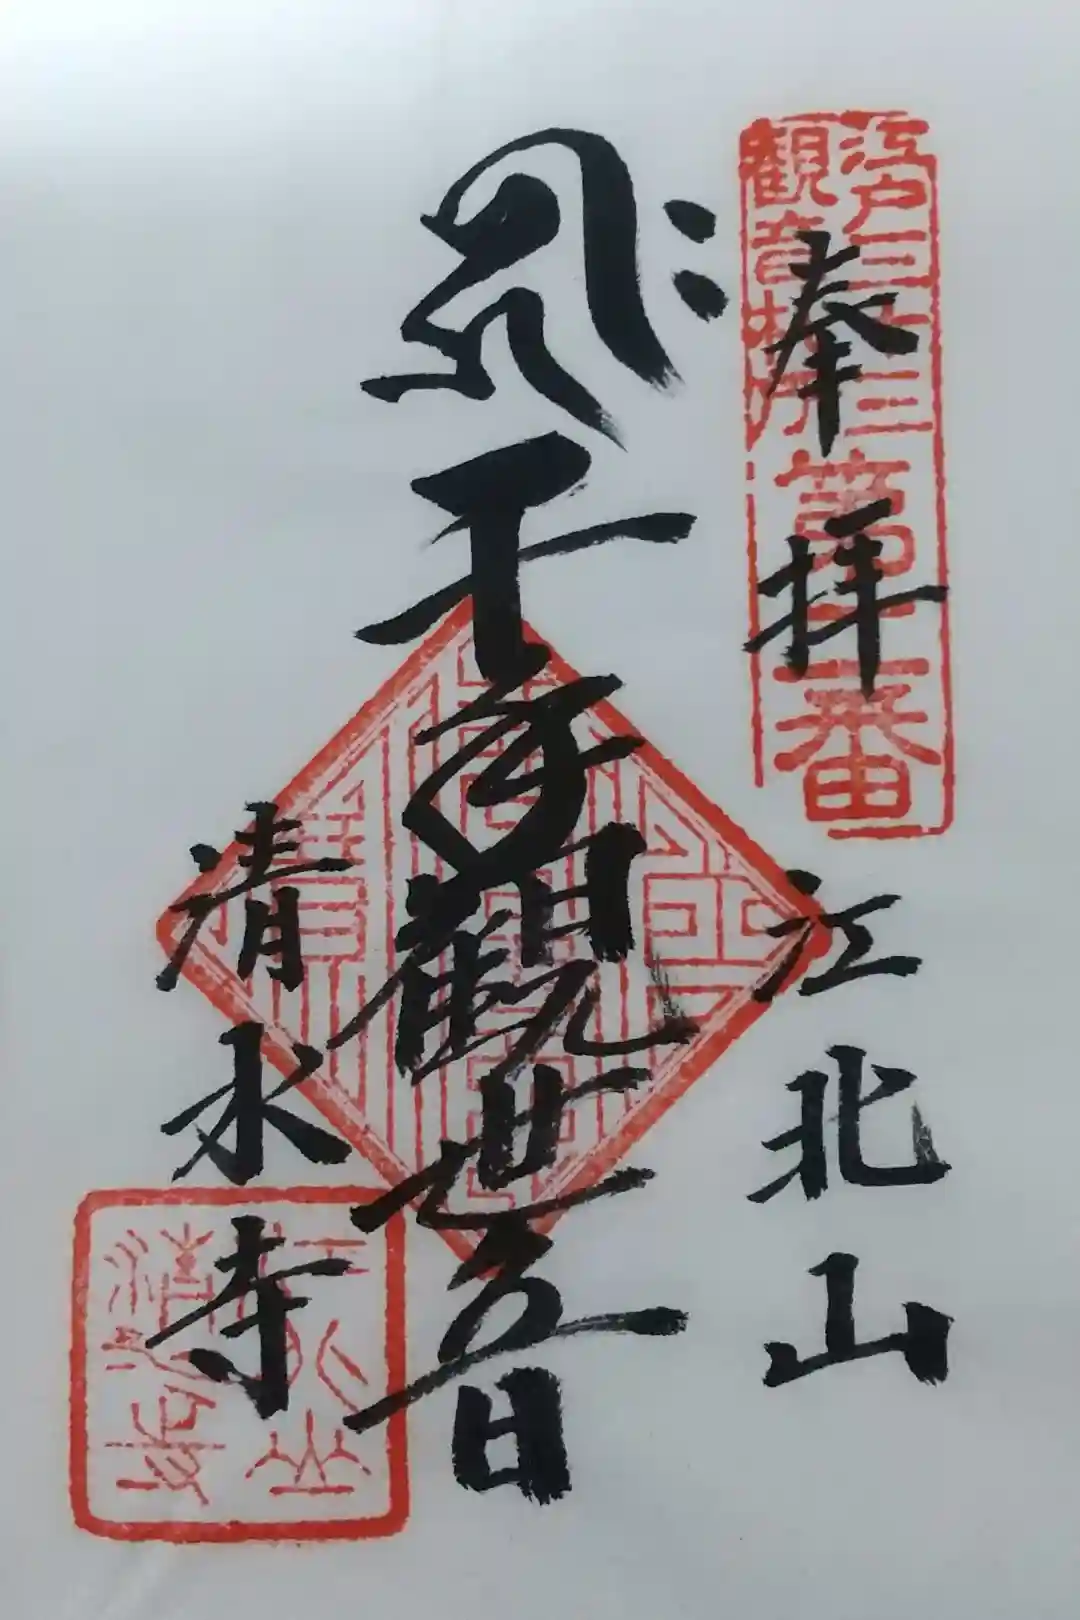 江戸三十三
観音札所
第二番
奉拝
江北山
𑖮𑖿𑖨𑖱𑖾
千手観世音
清水寺